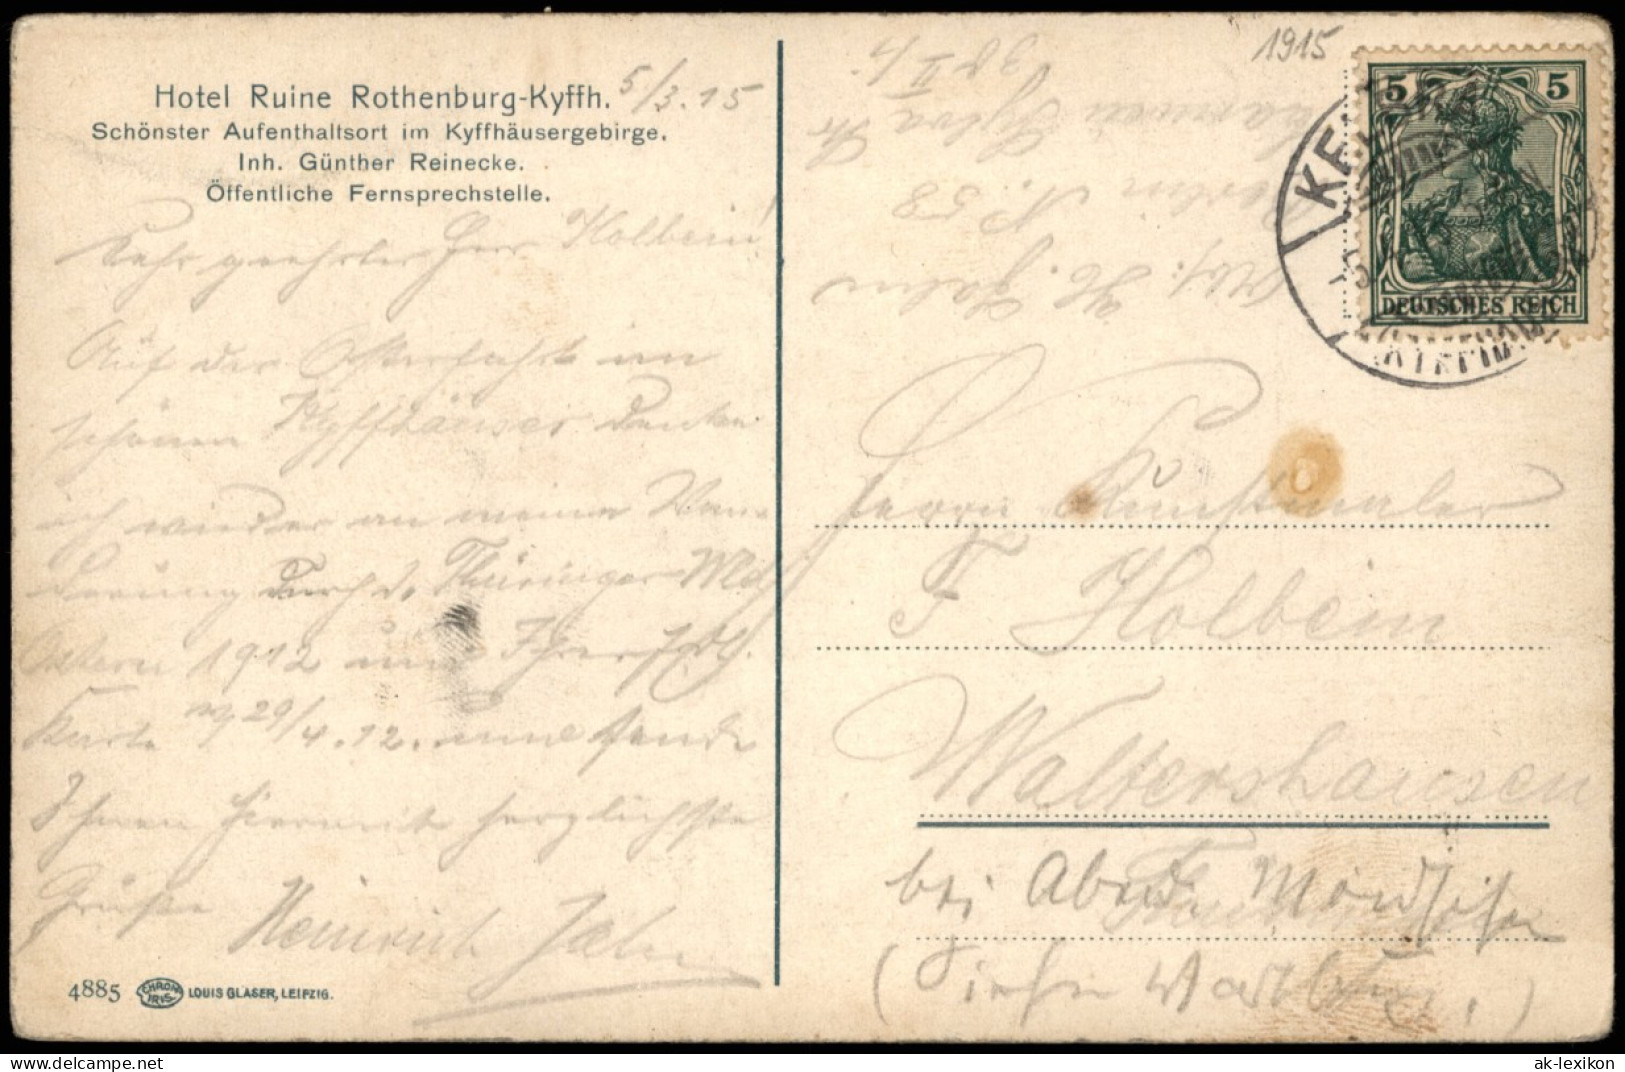 Hotel Ruine Rothenburg-Kyffh.
Schönster Aufenthaltsort im Kyffhäusergebirge.
Inh. Günther Reinecke.
Öffentliche Fernsprechstelle.
5/3.15
Sehr geehrter Herr Holbein!
Auf der Osterfahrt im
schönen Kyffhäuser denke
ich wieder an meine Wan-
derung durch d. Thüringer Wld
Ostern 1912 und Ihrer
Karte v. 29/4.12. und sende
Ihnen hiermit herzlichste
Grüße Heinrich Jahn
4885 CHROM IRIS LOUIS GLASER, LEIPZIG.
1915
5 5
DEUTSCHES REICH
KE
Abs: H. Jahn
Berlin N. 58
Herrn Kunstmaler
F Holbein
Waltershausen
bei
(Siehe Wartburg.)
ak-lexikon